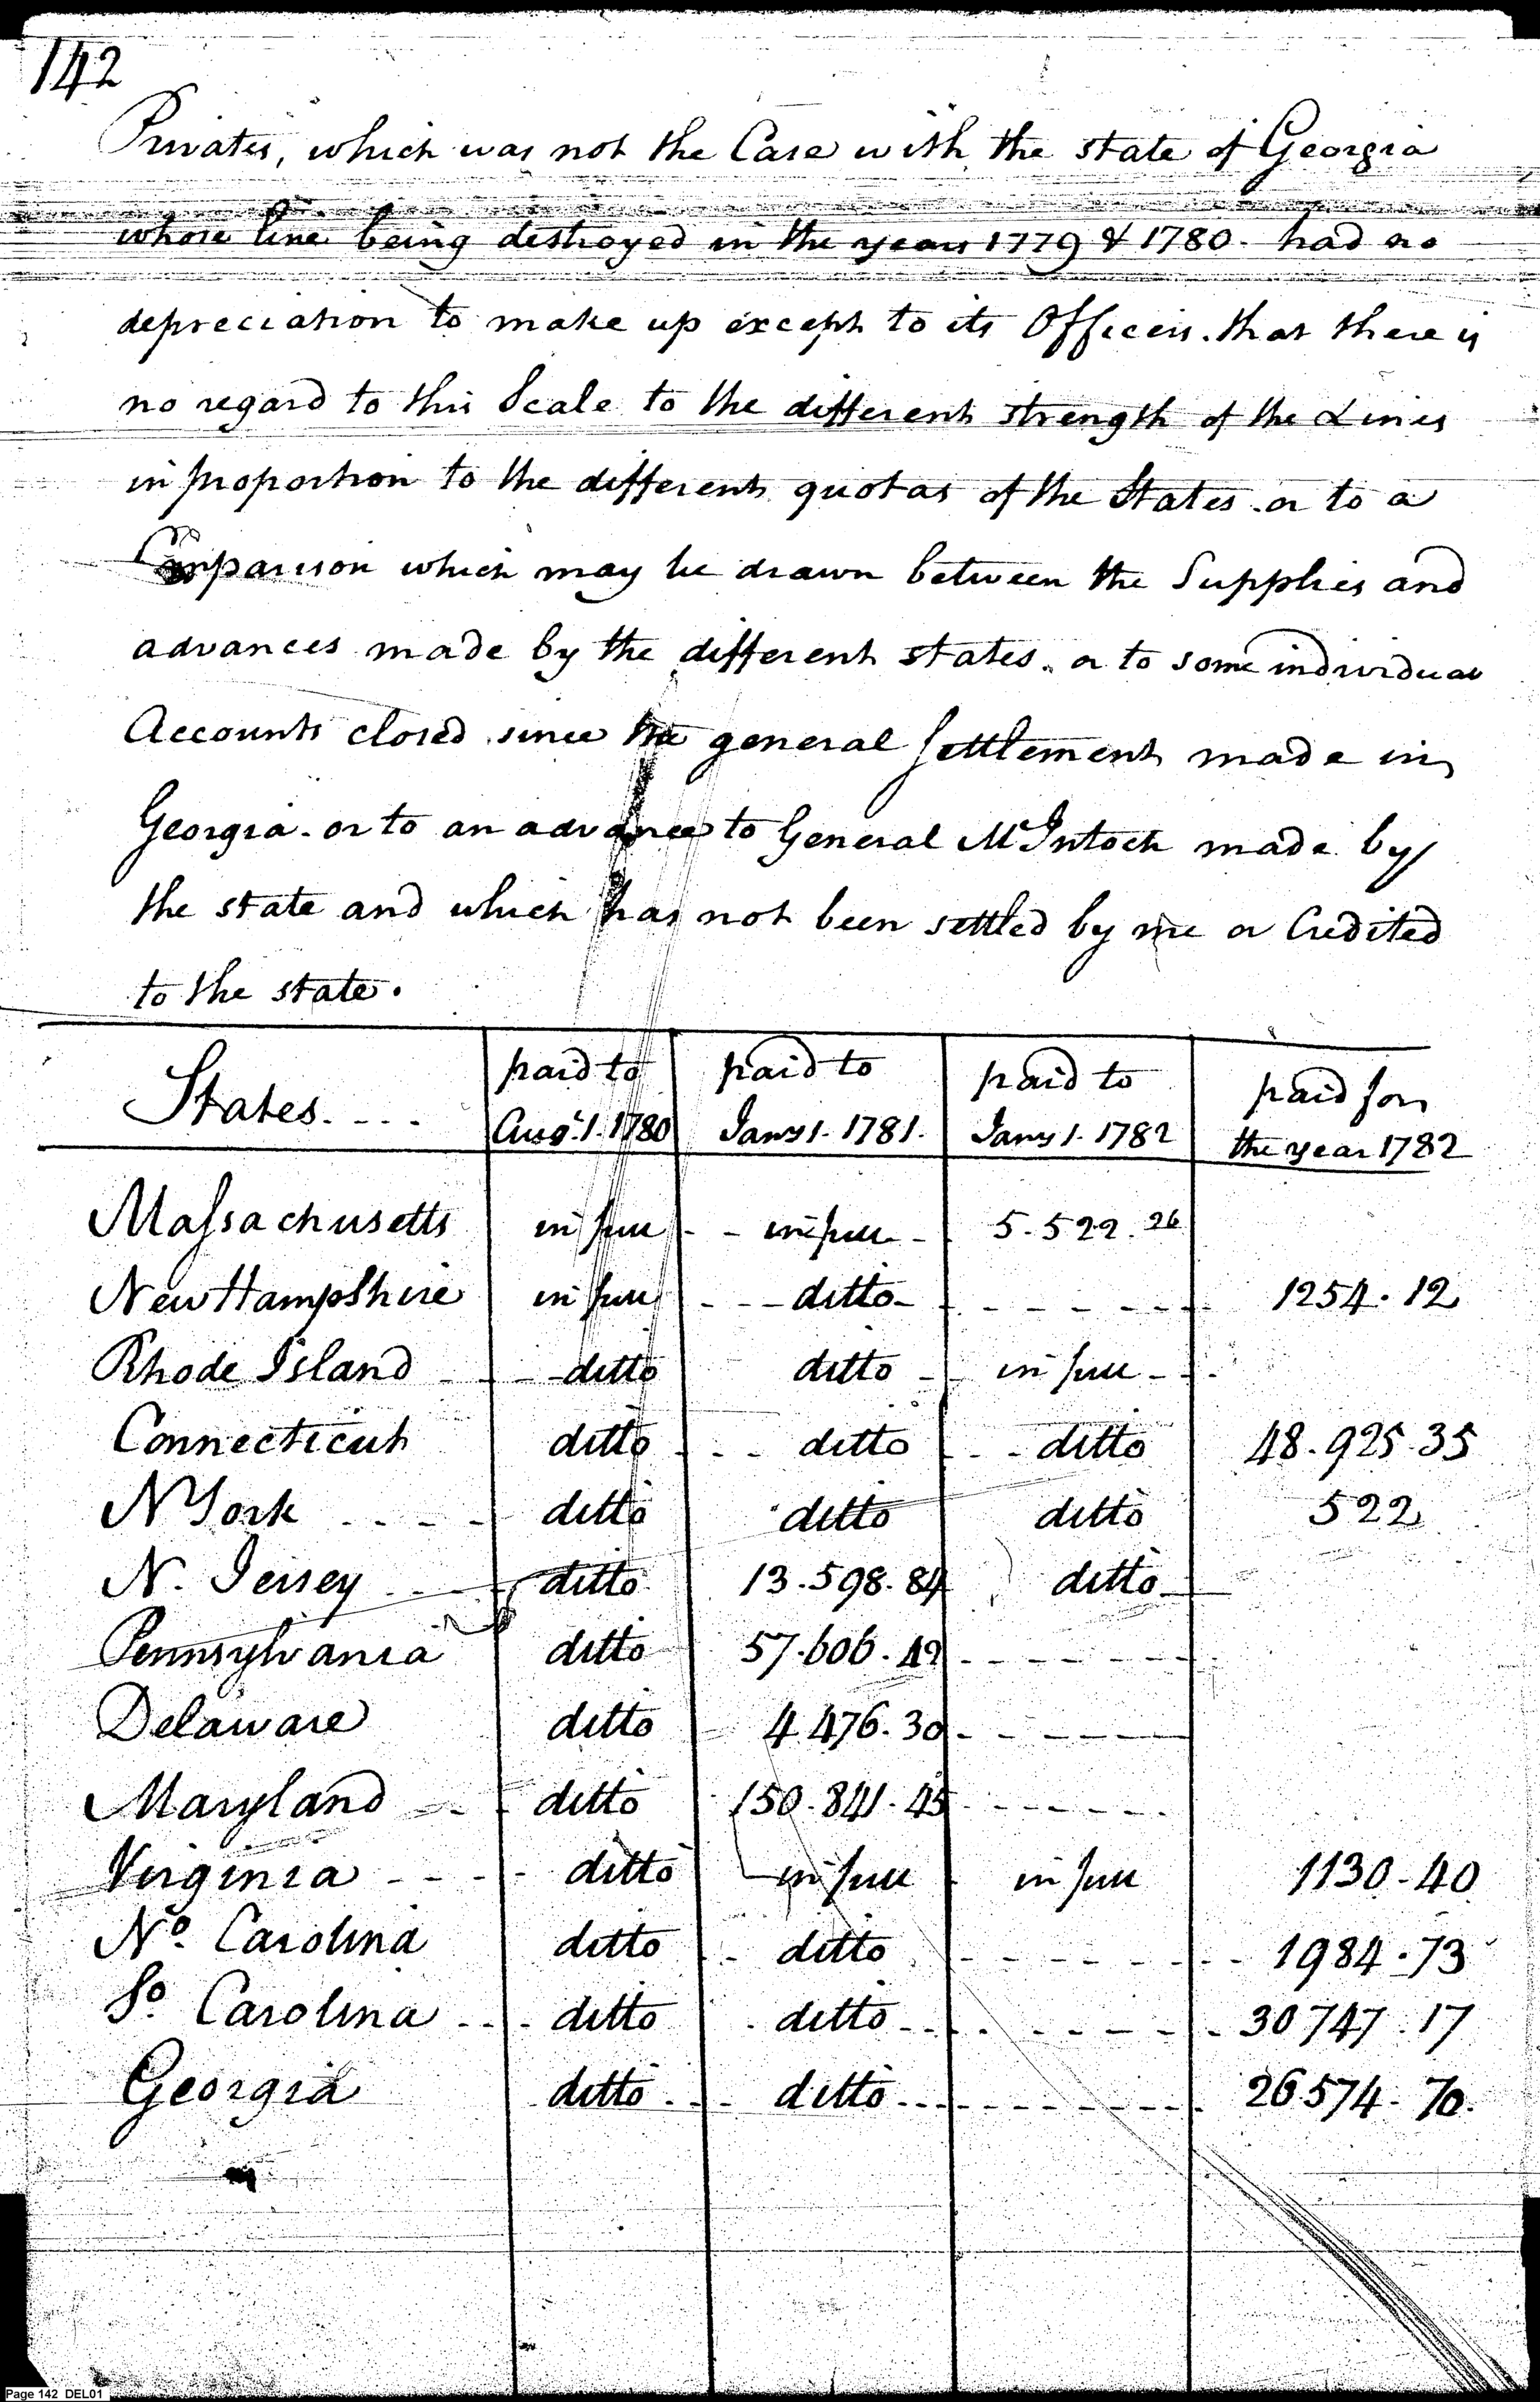 142
Privates, which was not the Case with the state of Georgia
whose line being destroyed in the years 1779 & 1780. had no
depreciation to make up except to its Officers. that there is
no regard to this Scale to the different strength of the Lines
in proportion to the different quotas of the States. or to a
Comparison which may be drawn between the Supplies and
advances made by the different states. or to some individual
Accounts closed since the general settlement made in
Georgia. or to an advance to General McIntosh made by
the state and which has not been settled by me or Credited
to the state.
States.... paid to Augt. 1. 1780 paid to Jany 1. 1781. paid to Jany 1. 1782 paid for the year 1782
Massachusetts in full - - in full - 5.522.26
New Hampshire in full - - - ditto - - - - - - - 1254.12
Rhode Island - - - ditto ditto - - in full - -
Connecticut ditto - - - ditto - - ditto 48.925.35
N York - - - - ditto ditto ditto 522
N. Jersey - - - ditto 13.598.84 ditto
Pennsylvania ditto 57.606.42 - - - - - -
Delaware ditto 4.476.30 - - - - - -
Maryland - - - ditto 150.841.45 - - - - - -
Virginia - - - - ditto in full - in full 1130.40
No. Carolina ditto - - ditto - - - - - - - - 1984.73
So. Carolina - - - ditto - ditto - - - - - - - - 30747.17
Georgia ditto - - - ditto - - - - - - - - - 26574.70.
Page 142 DEL01